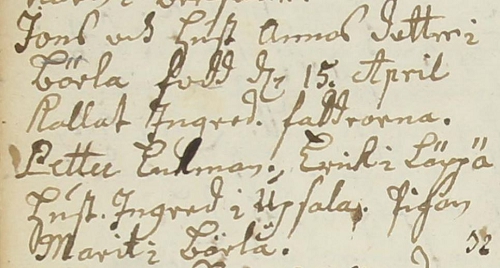 Jons och Hust Annas dotter i
Börla född d. 15. April
Kallat Ingred. faddrarna.
Petter Ekman. Erik i Löppö
Hust. Ingred i Upsala. Pigan
Marit i Börla. 32